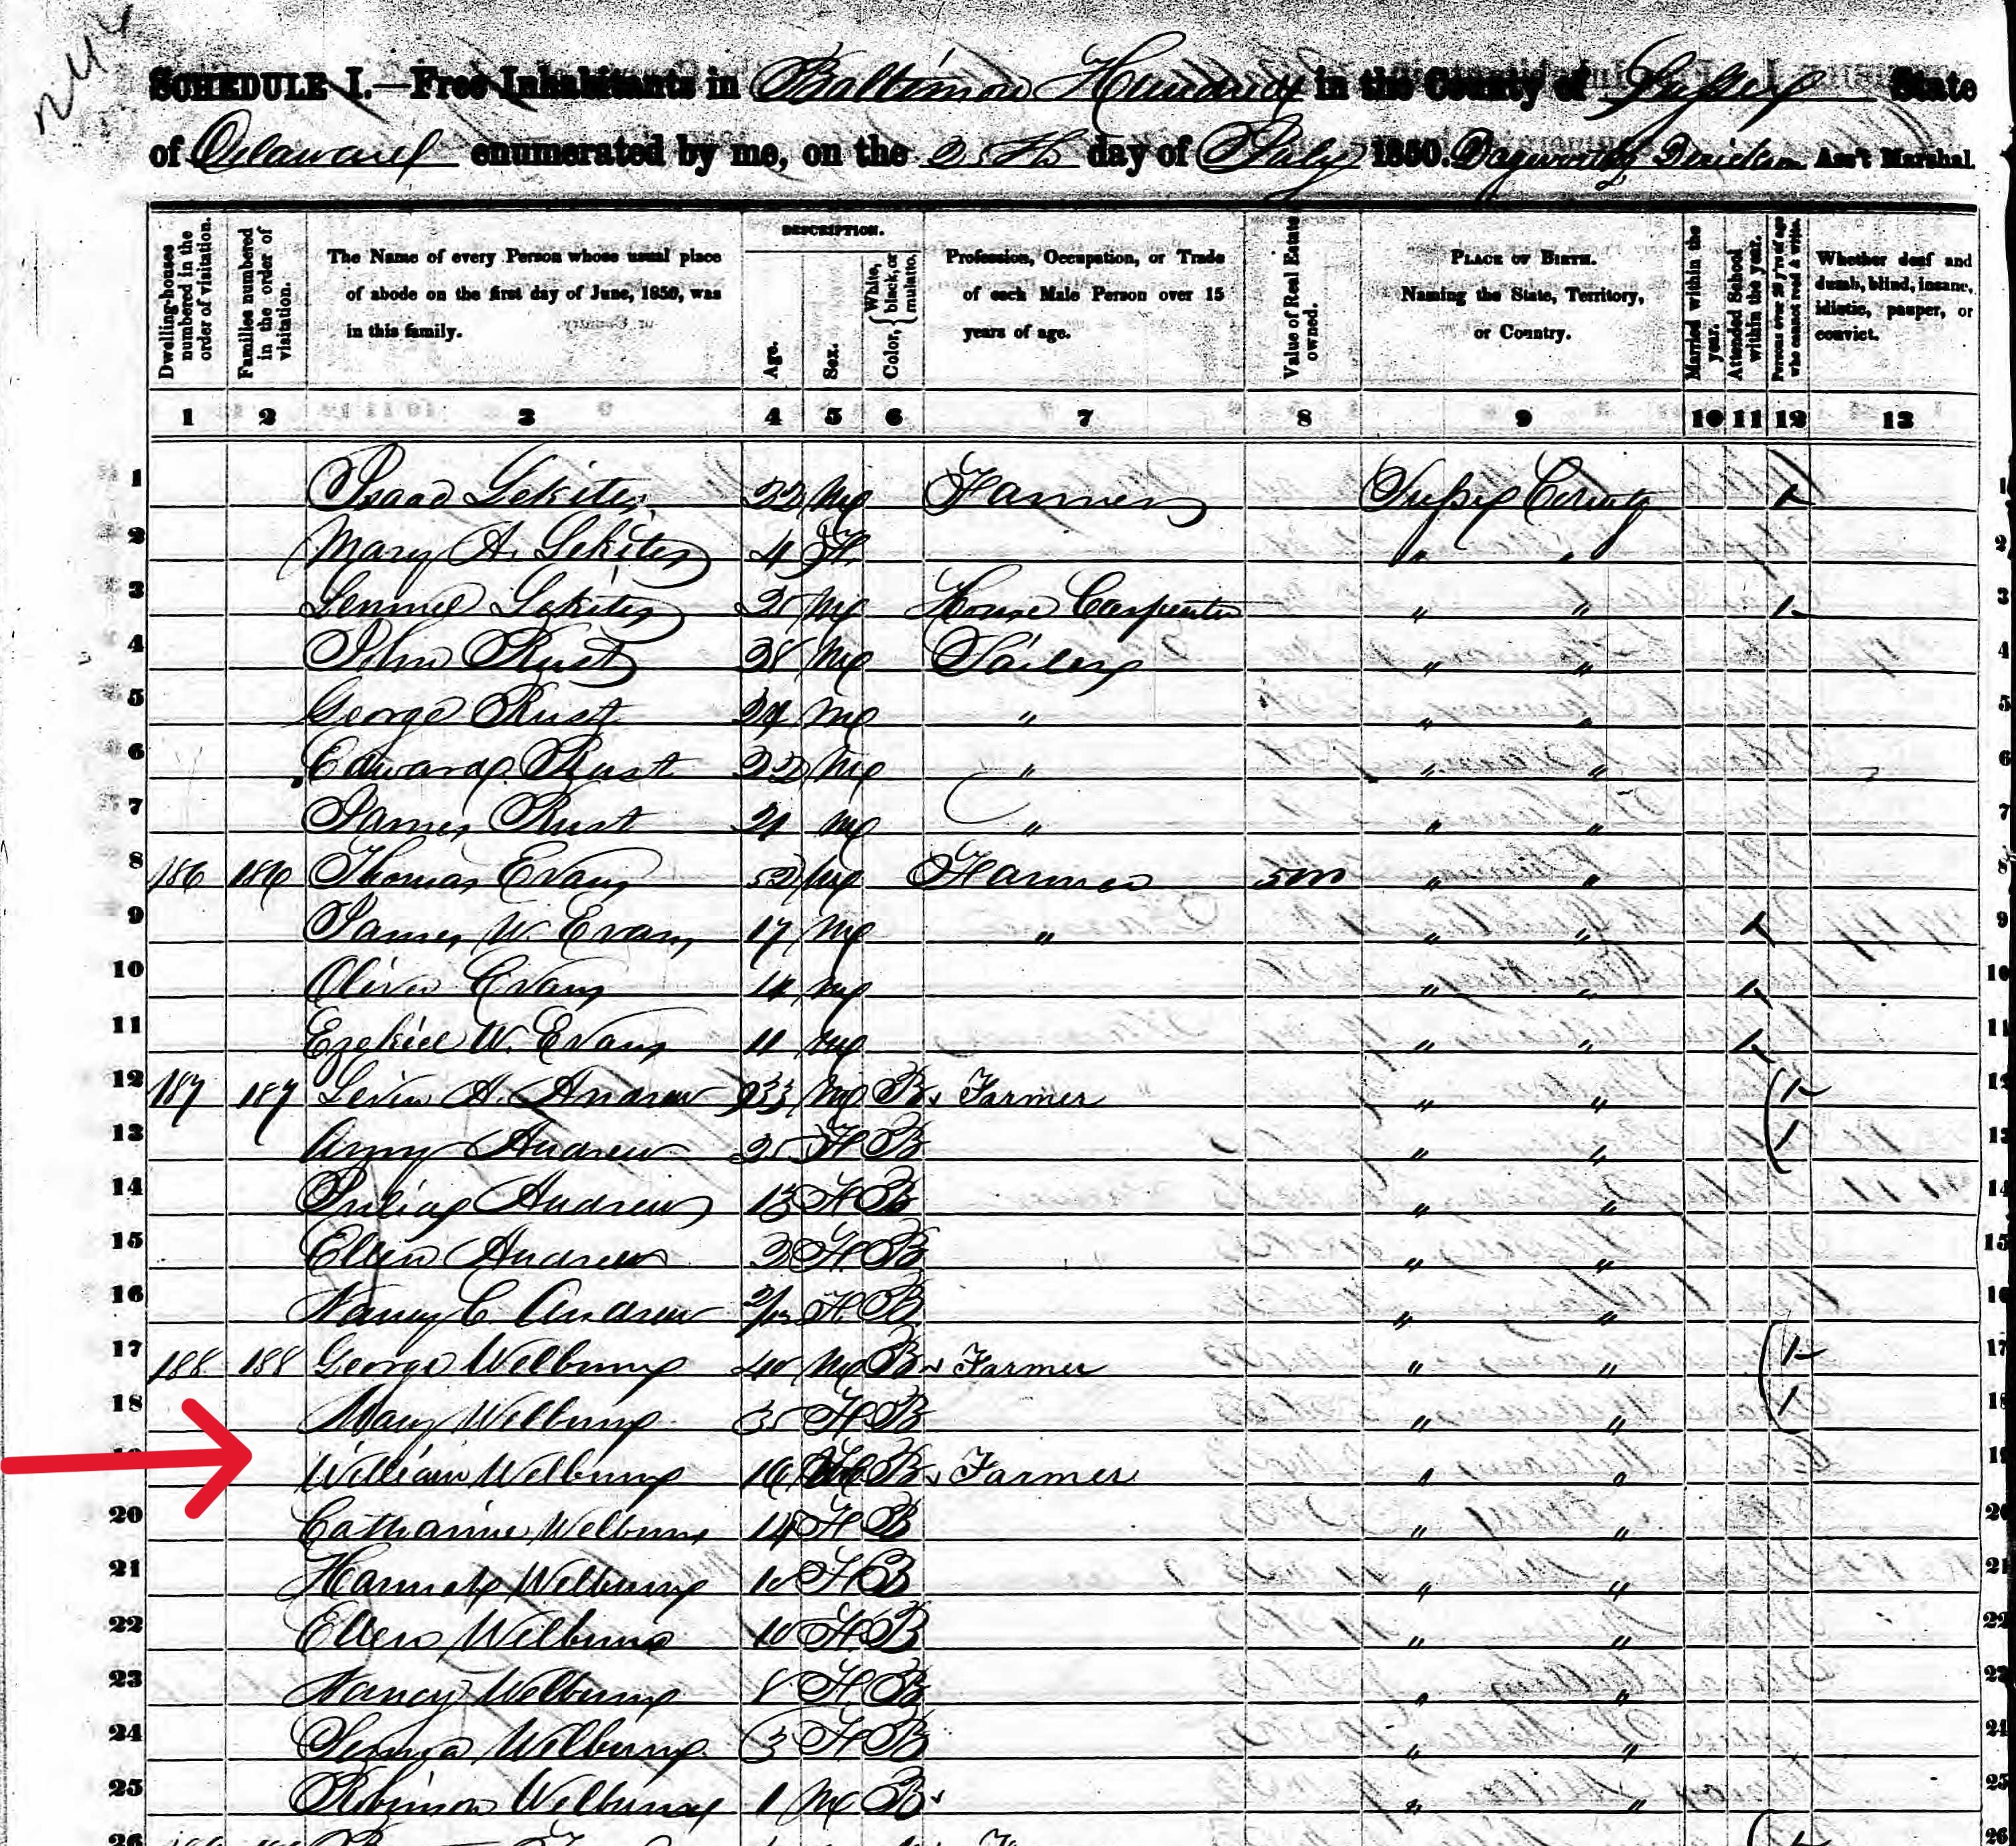 244
SCHEDULE I.—Free Inhabitants in Baltimore Hundred in the County of Sussex State
of Delaware enumerated by me, on the day of July 1850. Dagworthy Derickson Ass't Marshal.
Dwelling-houses numbered in the order of visitation.
Families numbered in the order of visitation.
The Name of every Person whose usual place of abode on the first day of June, 1850, was in this family.
DESCRIPTION.
Age.
Sex.
Color, { White, black, or mulatto.
Profession, Occupation, or Trade of each Male Person over 15 years of age.
Value of Real Estate owned.
PLACE OF BIRTH. Naming the State, Territory, or Country.
Married within the year.
Attended School within the year.
Persons over 20 y'rs of age who cannot read & write.
Whether deaf and dumb, blind, insane, idiotic, pauper, or convict.
1 2 3 4 5 6 7 8 9 10 11 12 13
1 Isaac Lekites 22 M Farmer Sussex County 1 1
2 Mary A. Lekites 4 F " " 2
3 Lemuel Lekites M House Carpenter " " 1 3
4 John Rust 38 M Sailer " " 4
5 George Rust M " " " 5
6 Edward Rust 22 M " " " 6
7 James Rust 21 M " " " 7
8 186 186 Thomas Evans 52 M Farmer 500 " " 8
9 James W. Evans 17 M " " " 1 9
10 Oliver Evans 14 M " " 1 10
11 Ezekiel W. Evans 11 M " " 1 11
12 187 187 Levin A. Andrew 33 M B Farmer " " 1 12
13 Amy Andrew 25 F B " " 1 13
14 Andrew 13 F B " " 14
15 Ellen Andrew 3 F B " " 15
16 Nancy C. Andrew F B " " 16
17 188 188 George Welburn 40 M B Farmer " " 1 17
18 Mary Welburn 35 F B " " 1 18
19 William Welburn 16 M B Farmer " " 19
20 Catharine Welburn 14 F B " " 20
21 Hannah Welburn F B " " 21
22 Ellen Welburn 10 F B " " 22
23 Nancy Welburn 8 F B " " 23
24 Welburn 3 F B " " 24
25 Robinson Welburn 1 M B " " 25
26 26